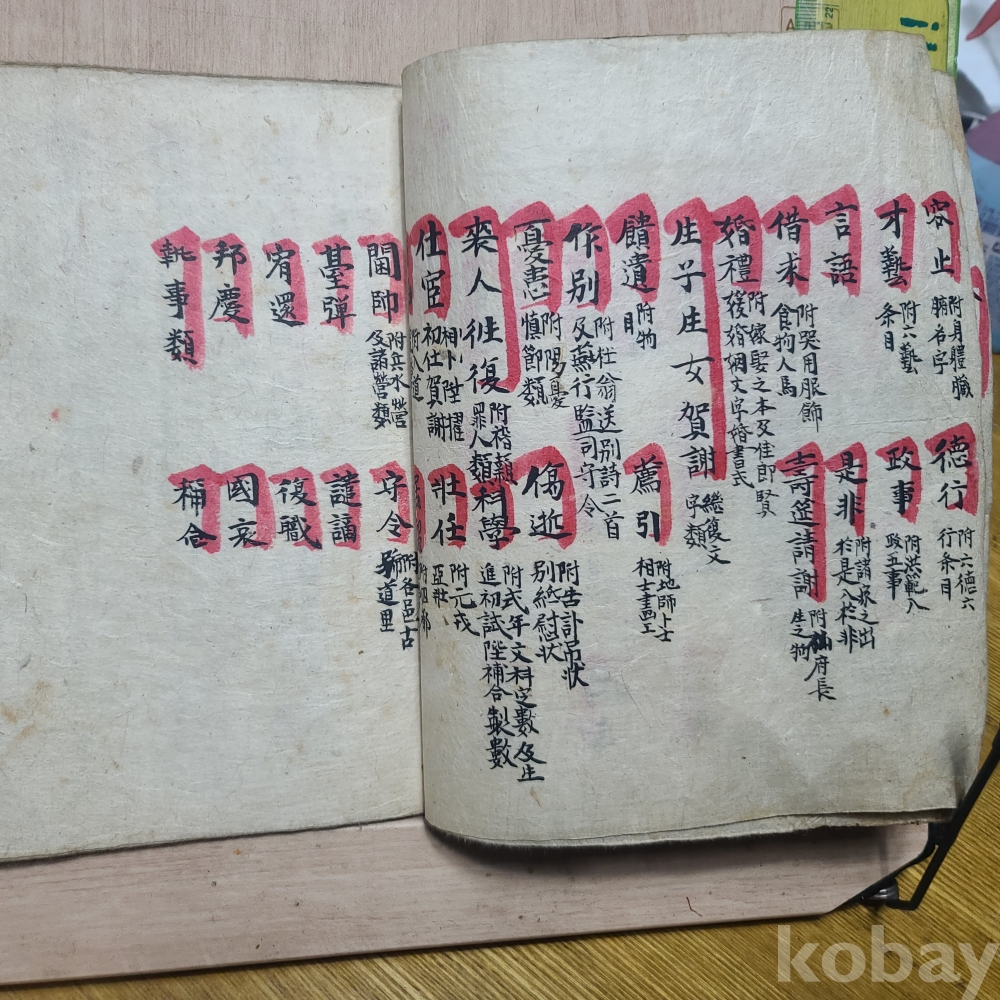 容止 附身體臟
腑名字
德行 附六德六
行条目
才藝 附六藝
条目
政事 附洪範八
政五事
言語
是非 附諸家之出
於是入於非
借求 附哭用服飾
食物人馬
壽筵請謝 附仙府長
生之物
婚禮 附嫁娶之本及佳郎賢
後婚姻文字婚書式
生子生女賀謝 繼後文
字類
饋遺 附物
目
薦引 附地師卜士
相士畫工
作別 附杜翁送別詩二首
及燕行監司守令
傷逝 附告訃吊狀
別紙慰狀
憂患 附陽憂
慎節類
科學 附式年文科定數及生
進初試陞補合製數
喪人徃復
罪人類
壯任 附元戎
亞壯
仕宦 相卜陞擢
初仕賀謝
閫帥 附兵水營
及諸營類
守令 附各邑古
號道里
臺彈
譴謫
宥還
復職
邦慶
國哀
執事類
稱合
22
kobay